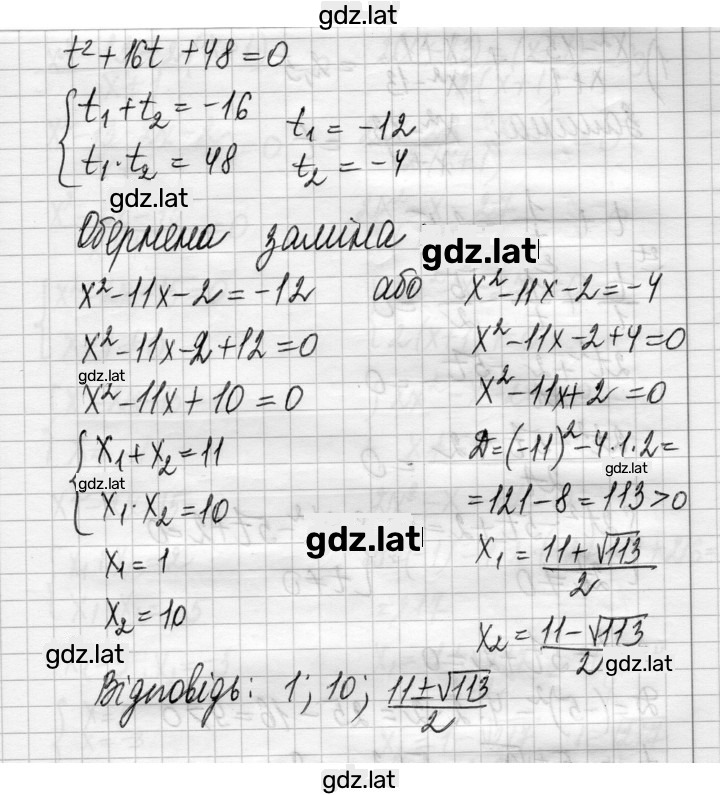 gdz.lat
t² + 16t + 48 = 0
{ t₁ + t₂ = -16
t₁ · t₂ = 48
t₁ = -12
t₂ = -4
gdz.lat
Обернена заміна
gdz.lat
x² - 11x - 2 = -12 або x² - 11x - 2 = -4
x² - 11x - 2 + 12 = 0
gdz.lat
x² - 11x + 10 = 0
{ x₁ + x₂ = 11
gdz.lat
x₁ · x₂ = 10
x₁ = 1
x₂ = 10
x² - 11x - 2 + 4 = 0
x² - 11x + 2 = 0
D = (-11)² - 4 · 1 · 2 =
gdz.lat
= 121 - 8 = 113 > 0
gdz.lat
x₁ = (11 + √113)/2
x₂ = (11 - √113)/2
gdz.lat
gdz.lat
Відповідь: 1; 10; (11 ± √113)/2
gdz.lat